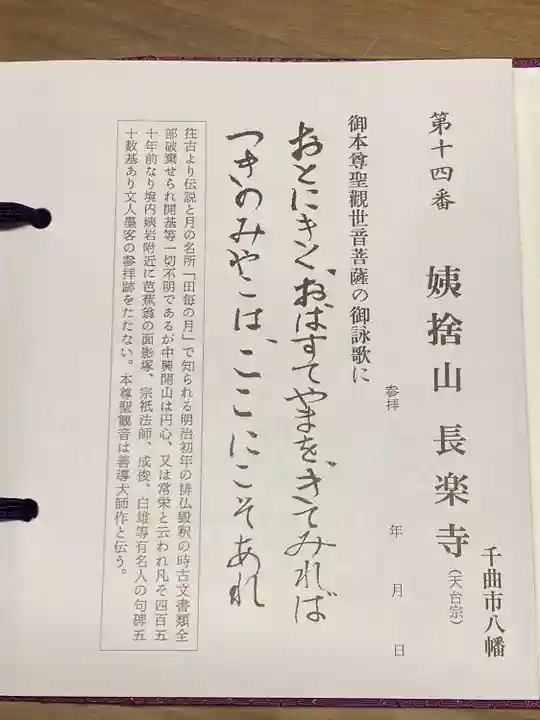 第十四番　姨捨山　長楽寺（天台宗）
千曲市八幡
参拝　年　月　日
御本尊聖觀世音菩薩の御詠歌に
おとにきく、おばすてやまを、きてみれば
つきのみやこは、ここにこそあれ
往古より伝説と月の名所「田毎の月」で知られる明治初年の排仏毀釈の時古文書類全
部破棄せられ開基等一切不明であるが中興開山は円心、又は常栄と云われ凡そ四百五
十年前なり境内姨岩附近に芭蕉翁の面影塚、宗祇法師、成俊、白雄等有名人の句碑五
十数基あり文人墨客の参拝跡をたたない。本尊聖觀音は善導大師作と伝う。